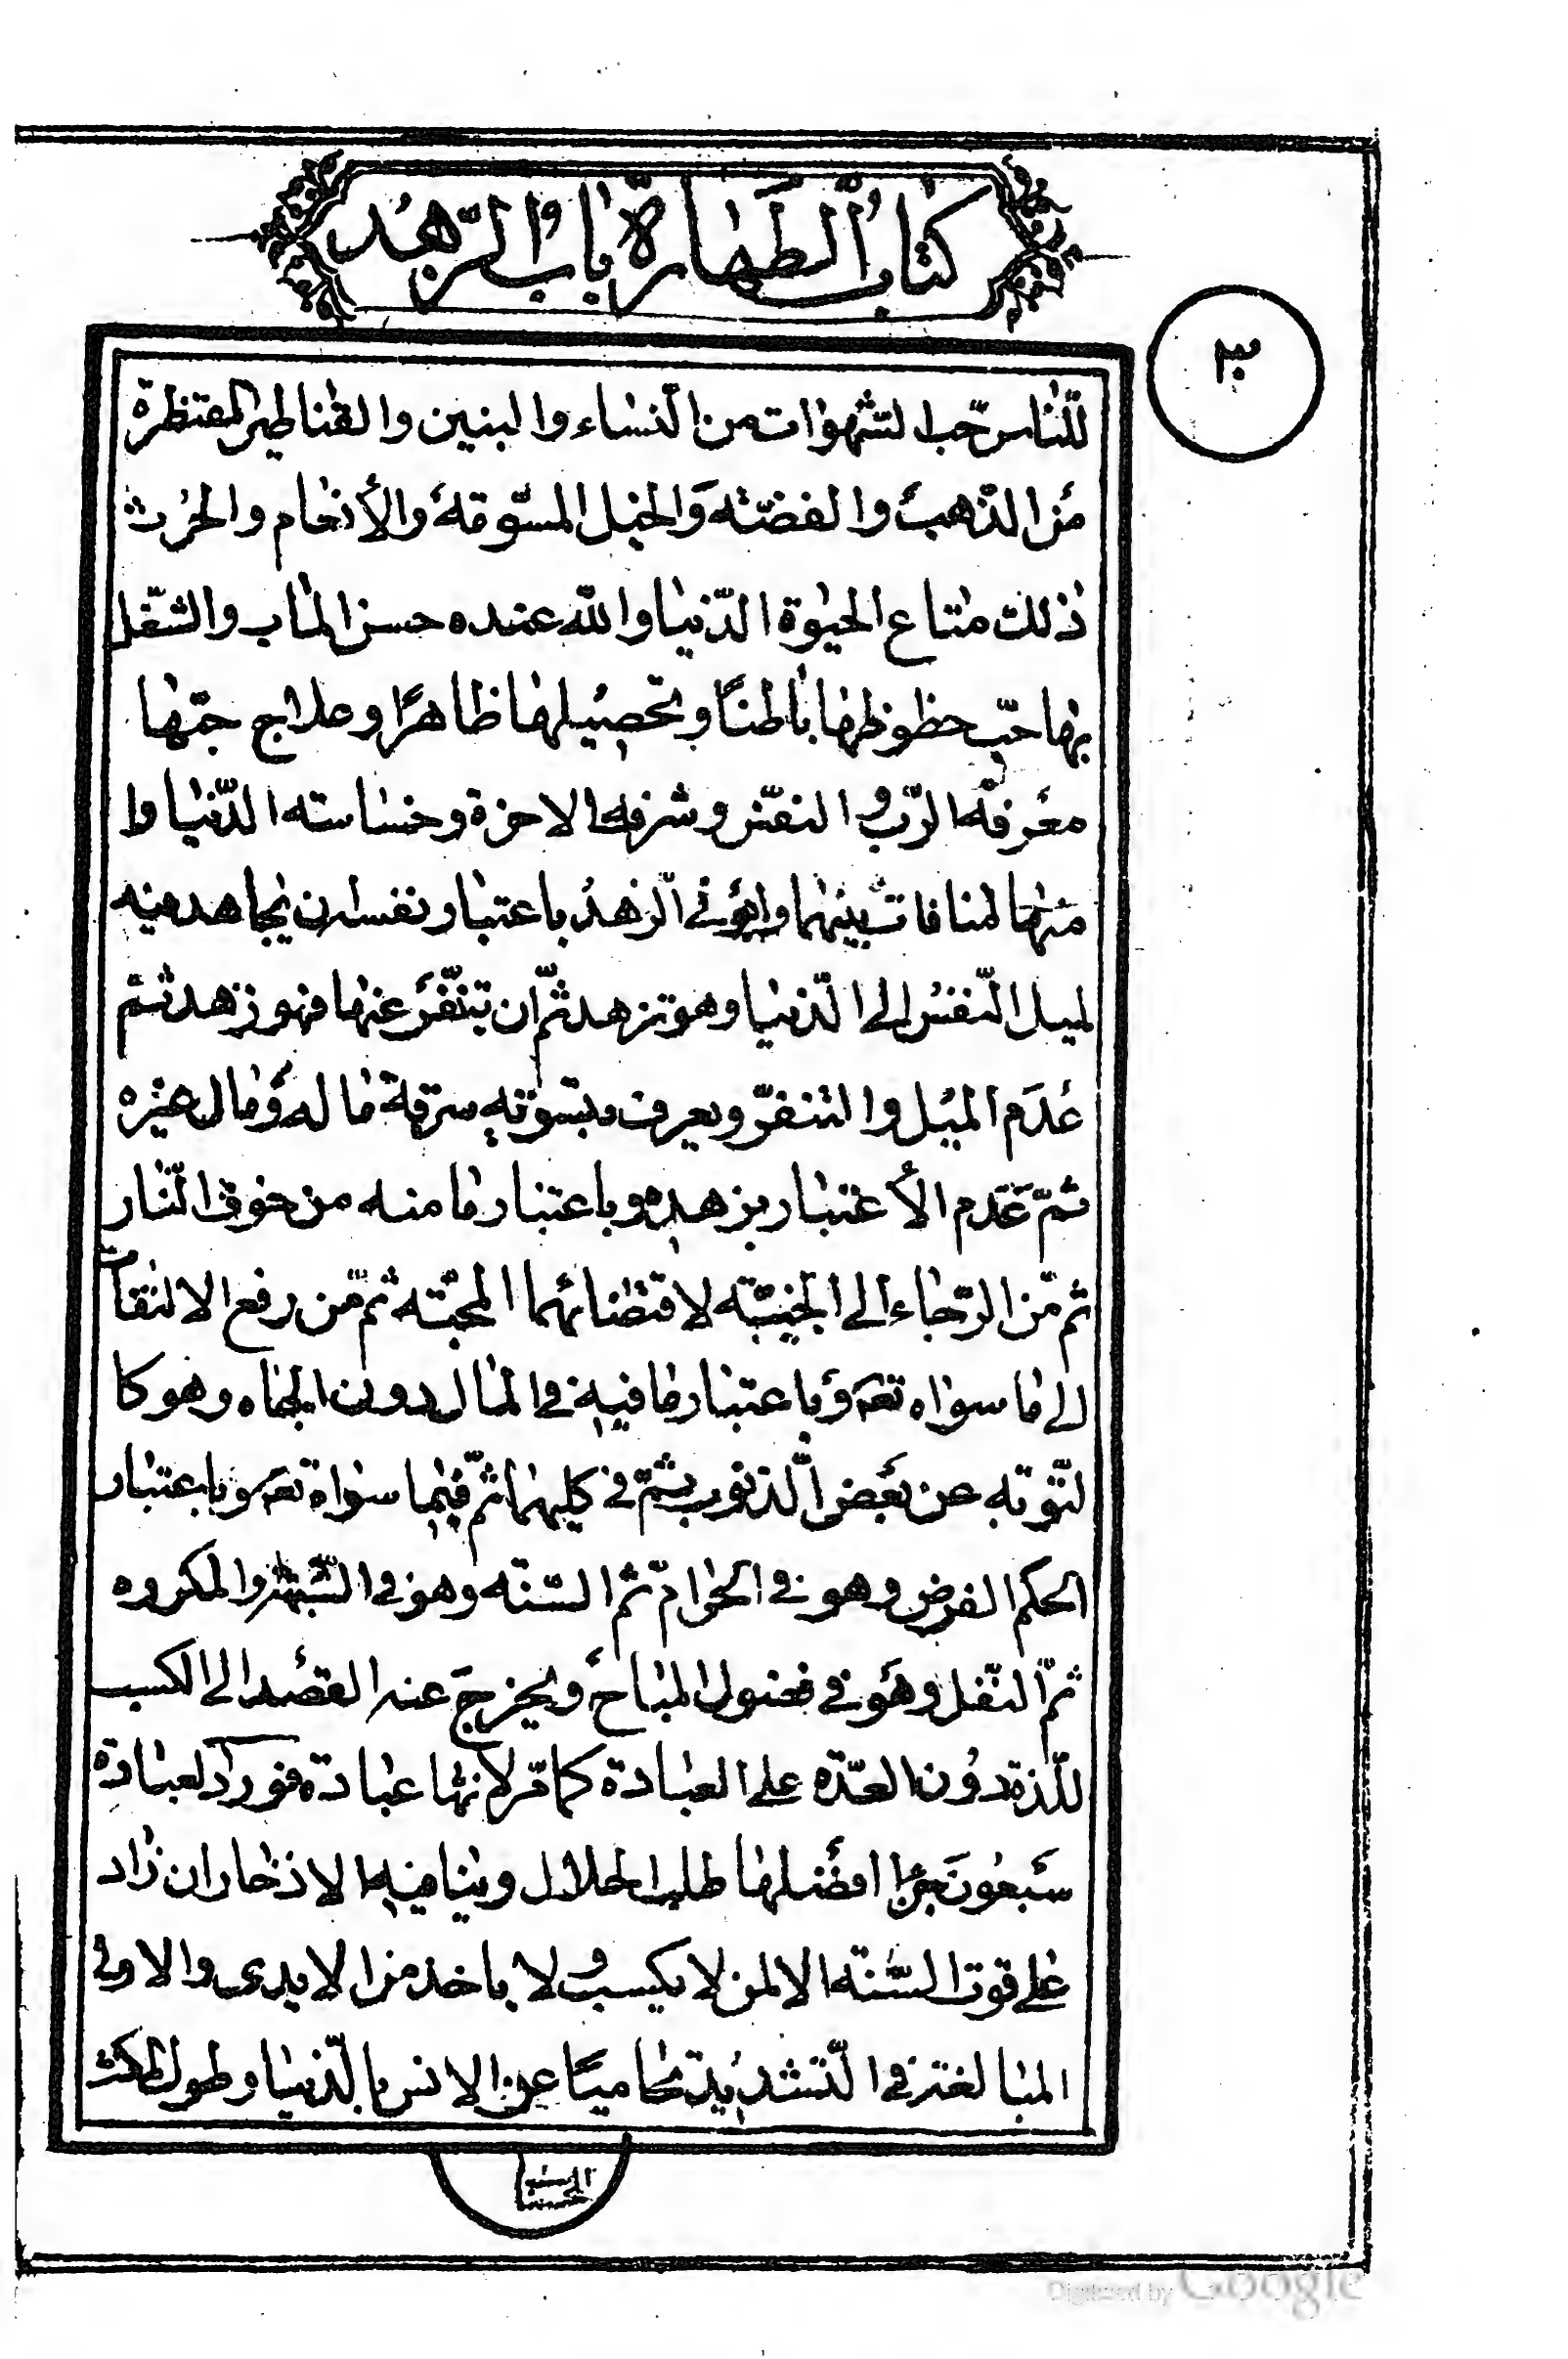 كتاب الطهارة باب الزهد
٣٠
للناس حب الشهوات من النساء والبنين والقناطير المقنطرة
من الذهب والفضة والخيل المسومة والأنعام والحرث
ذلك متاع الحيوة الدنيا والله عنده حسن المآب والشغل
بها حب حظوظها باطنًا وتحصيلها ظاهرًا وعلاج حبها
معرفة الرب والنفس وشرف الاخرة وخساسته الدنيا وا
منهما لمنافات بينهما وهو في الزهد باعتبار نفسه ان يجاهد منه
لميل النفس الى الدنيا وهو تزهد ثم ان تتنفر عنها فهو زهد ثم
عدم الميل والتنفر ويعرف بتسوية سرقة ما له وما لغيره
ثم عدم الأعتبار بزهده وباعتبار ما منه من خوف النار
ثم من الرجاء الى الجنة لاقتضائهما المحبته ثم من رفع الالتفات
الى ما سواه تعه وباعتبار ما فيه في المال دون الجاه وهو كا
لتوبه عن بعض الذنوب ثم في كليهما ثم فيما سواه تعه وباعتبار
الحكم الفرض وهو في الحرام ثم السنة وهو في الشبهة والمكروه
ثم النفل وهو في فضول المباح ويخرج عنه القصد الى الكسب
للذة دون العدة على العبادة كما مر لانها عبادة فورد العبادة
سبعون جزءا افضلها طلب الحلال وينافيه الادخار ان زاد
على قوت السنة الا لمن لا يكسب ولا ياخذ من الايدى والاولى
المبالغة في التشديد تحاميًا عن الانس بالدنيا وطول المكث
Digitized by Google